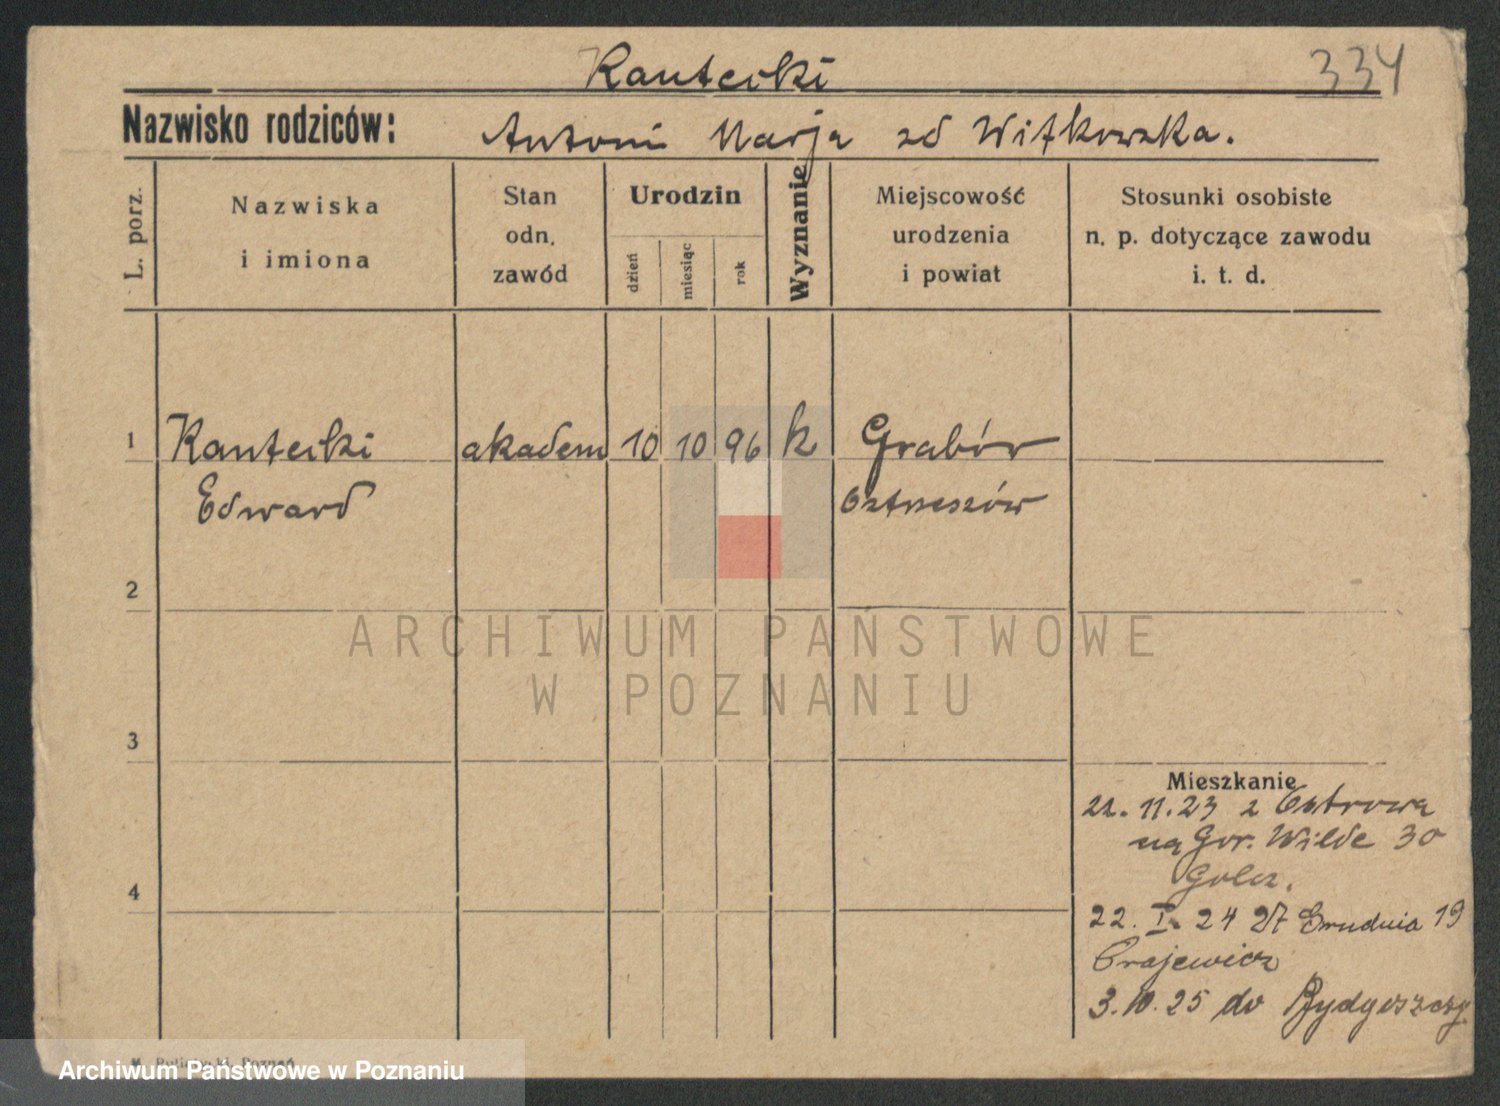 Kantecki
334
Nazwisko rodziców: Antoni Marja zd Witkowska.
L. porz.
Nazwiska
i imiona
Stan
odn.
zawód
Urodzin
dzień
miesiąc
rok
Wyznanie
Miejscowość
urodzenia
i powiat
Stosunki osobiste
n. p. dotyczące zawodu
i. t. d.
1 Kantecki akadem 10 10 96 k Grabów
Edward Ostrzeszów
2
3
4
Mieszkanie
22. 11. 23 z Ostrowa
na Gór. Wilde 30
Golcz.
22. I. 24 27 Grudnia 19
3. 10. 25 do Bydgoszczy
Poznań
ARCHIWUM PAŃSTWOWE
W POZNANIU
Archiwum Państwowe w Poznaniu